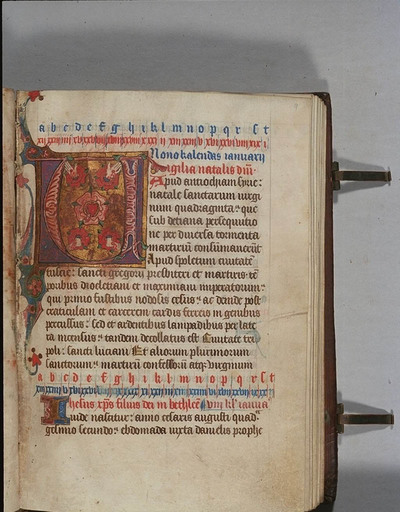 a b c d e f g h i k l m n o p q r s t
Nono kalendas ianuarij
Uigilia natalis dni.
Apud antiochiam syrie:
natale sanctarum uirgi
num quadraginta: que
sub deciana persequutio
ne per diuersa tormenta
martirium consumauerunt
Apud spoletum ciuitate
tuscie: sancti gregorij presbiteri et martiris: te
poribus diocletiani et maximiani imperatorum:
qui primo fustibus nodosis cesus: ac deinde post
craticulam et carcerem cardis ferreis in genibus
percussus: sed et ardentibus lampadibus per late
ra incensus: tandem decollatus est Ciuitate tri
poli: sancti luciani Et aliorum plurimorum
sanctorum: martirum confessorum atque uirginum
a b c d e f g h i k l m n o p q r s t
Ihesus xps filius dei in bethleem viii kl' ianua
iude nascitur: anno cesaris augusti quad
gesimo secundo: ebdomada iuxta danielis prophe